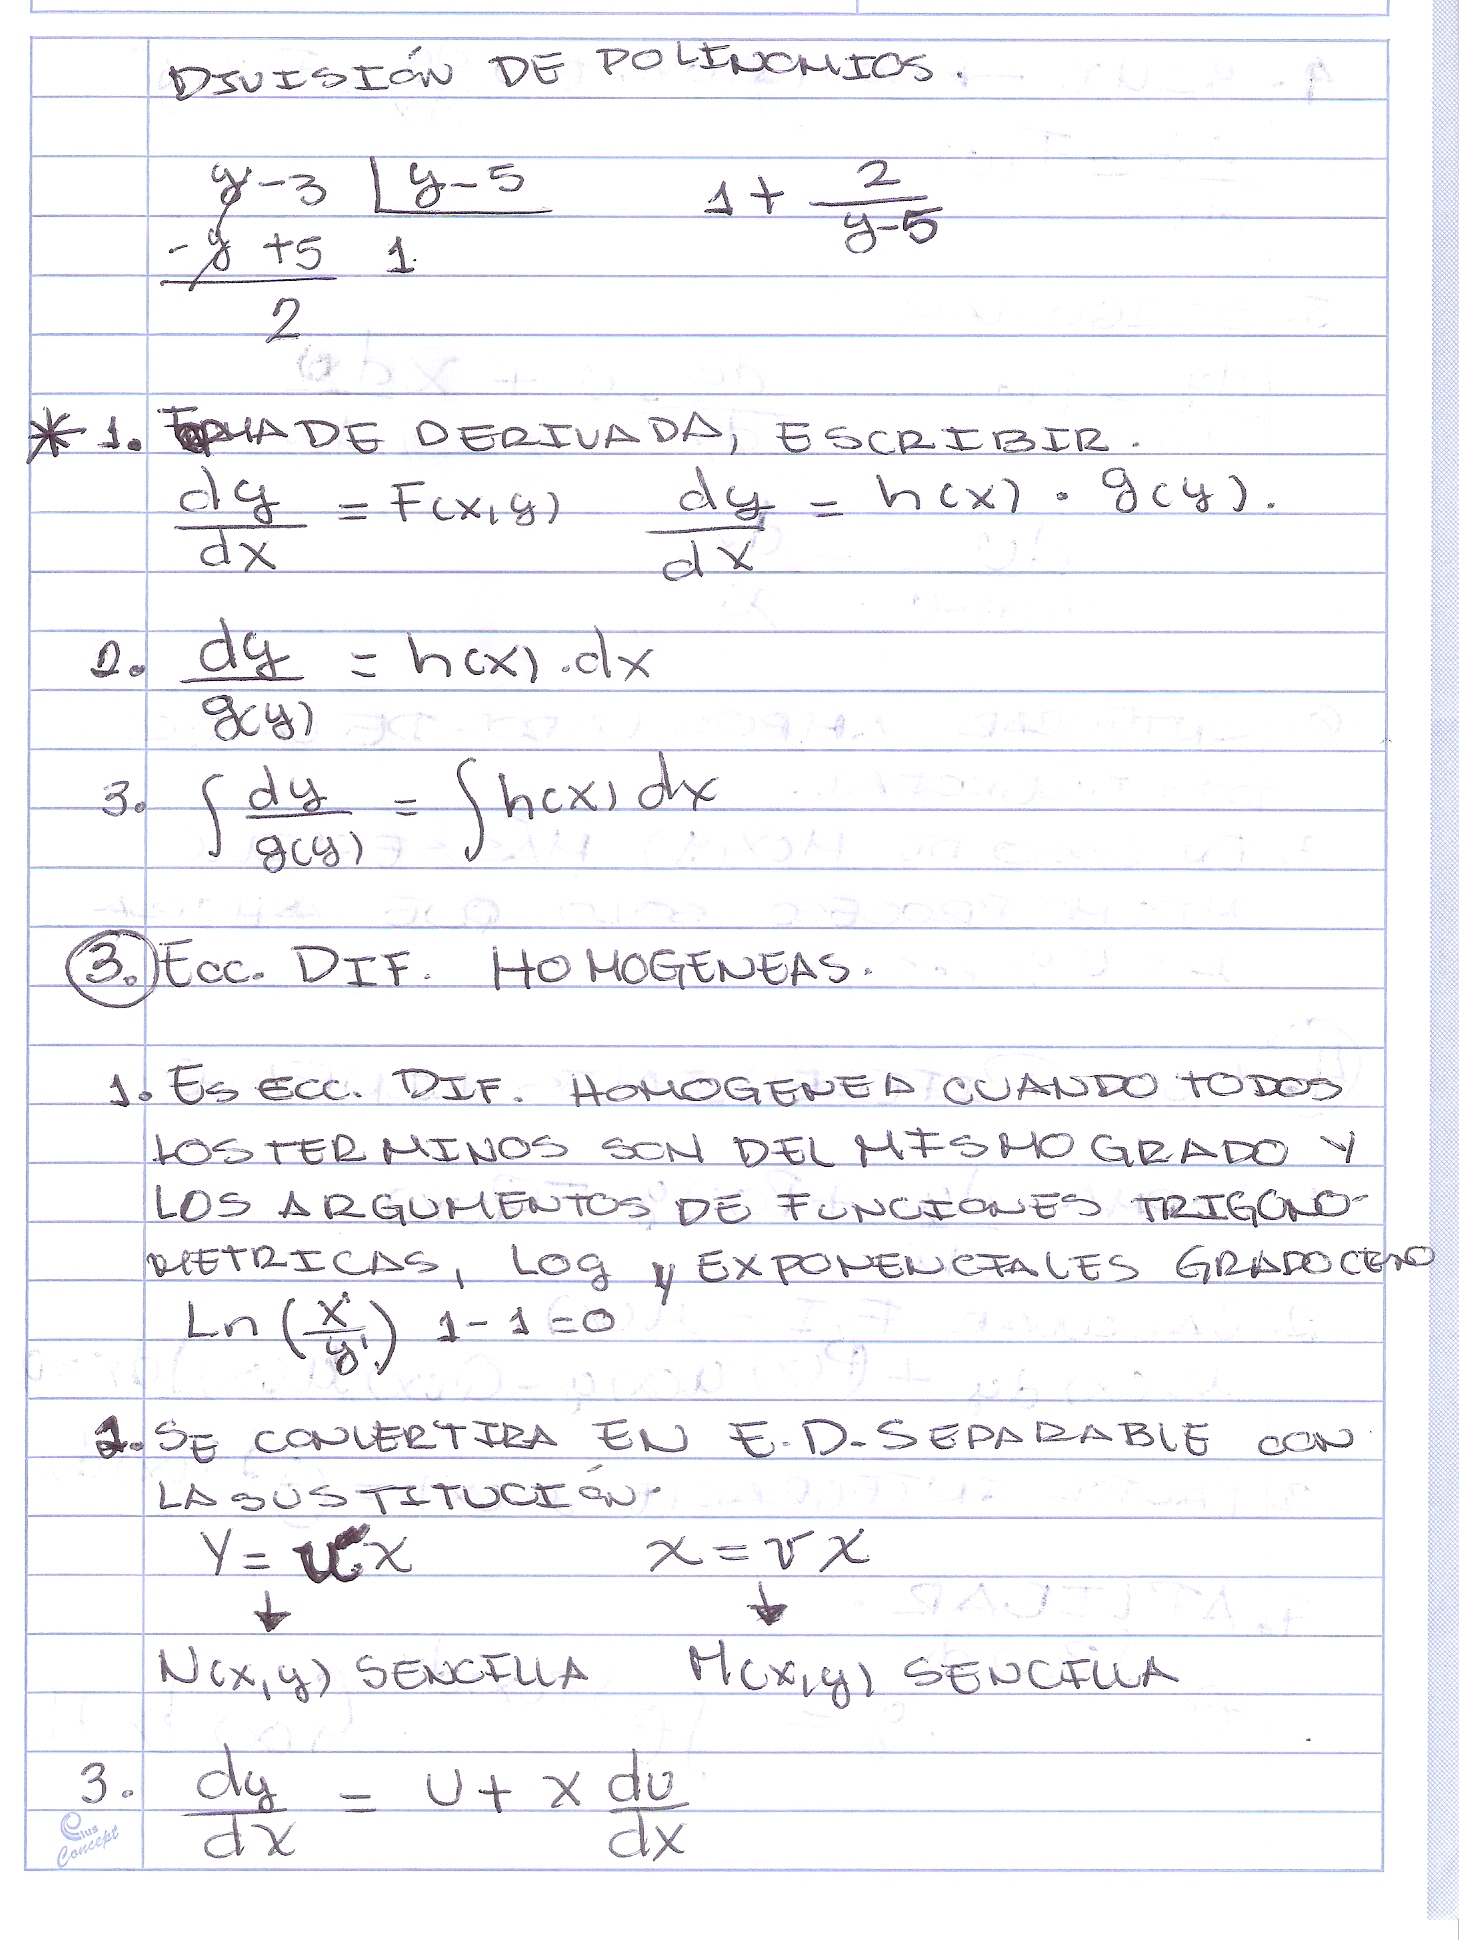 DIVISIÓN DE POLINOMIOS.
y-3 | y-5     1 + 2/(y-5)
-y +5   1
2
* 1. DE DERIVADA, ESCRIBIR.
dy/dx = F(x,y)     dy/dx = h(x) · g(y).
2. dy/g(y) = h(x).dx
3. ∫ dy/g(y) = ∫ h(x) dx
3. ECC. DIF. HOMOGENEAS.
1. ES ECC. DIF. HOMOGENEA CUANDO TODOS
LOS TERMINOS SON DEL MISMO GRADO Y
LOS ARGUMENTOS DE FUNCIONES TRIGONO-
METRICAS, LOG y EXPONENCIALES GRADO CERO
Ln (x¹/y¹) 1-1=0
2. SE CONVERTIRA EN E.D. SEPARABLE CON
LA SUSTITUCIÓN.
Y = ux     x = vx
↓     ↓
N(x,y) SENCILLA     M(x,y) SENCILLA
3. dy/dx = U + x du/dx
Elus
Concept